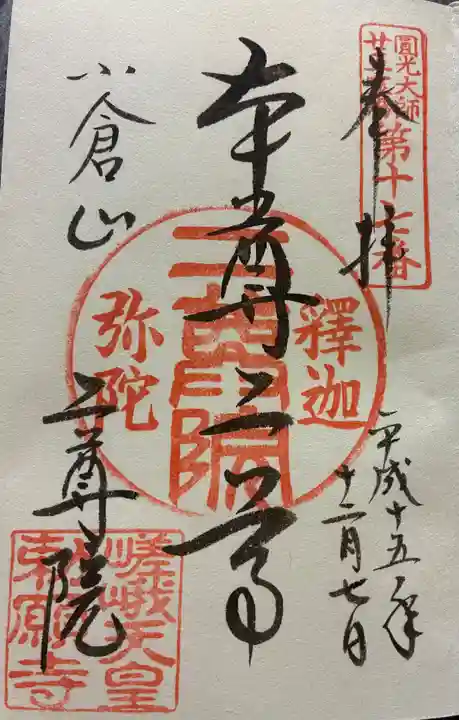 奉拝
圓光大師
第十七番
平成十五年
十二月七日
本尊二尊
釋迦
二尊院
弥陀
小倉山
二尊院
嵯峨天皇
願寺